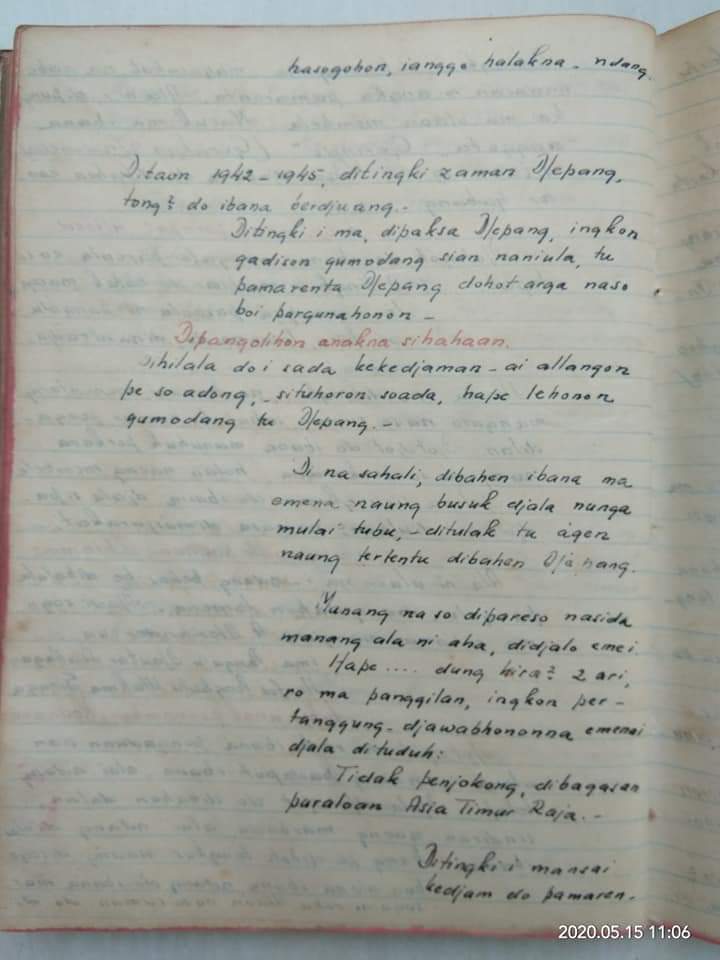 hasogohon, ianggo halakna - ndang
Ditaon 1942 - 1945, ditingki zaman Djepang,
tong² do ibana berdjuang. -
Ditingki i ma, dipaksa Djepang, ingkon
gadison gumodang sian naniula, tu
pamarenta Djepang dohot arga naso
boi pargunahonon -
Dipangolihon anakna sihahaan.
Dihilala do i sada kekedjaman - ai allangon
pe so adong, - situhoron soada, hape lehonon
gumodang tu Djepang. -
Di na sahali, dibahen ibana ma
emena naung busuk djala nunga
mulai tubu, - ditulak tu agen
naung tertentu dibahen Djepang.
Manang na so dipareso nasida
manang ala ni aha, didjalo eme i.
Hape .... dung hira² 2 ari,
ro ma panggilan, ingkon per-
tanggung-djawabhononna emenai
djala dituduh:
Tidak penjokong, dibagasan
paraloan Asia Timur Raja. -
Ditingki i mansai
kedjam do pamaren-
2020.05.15 11:06